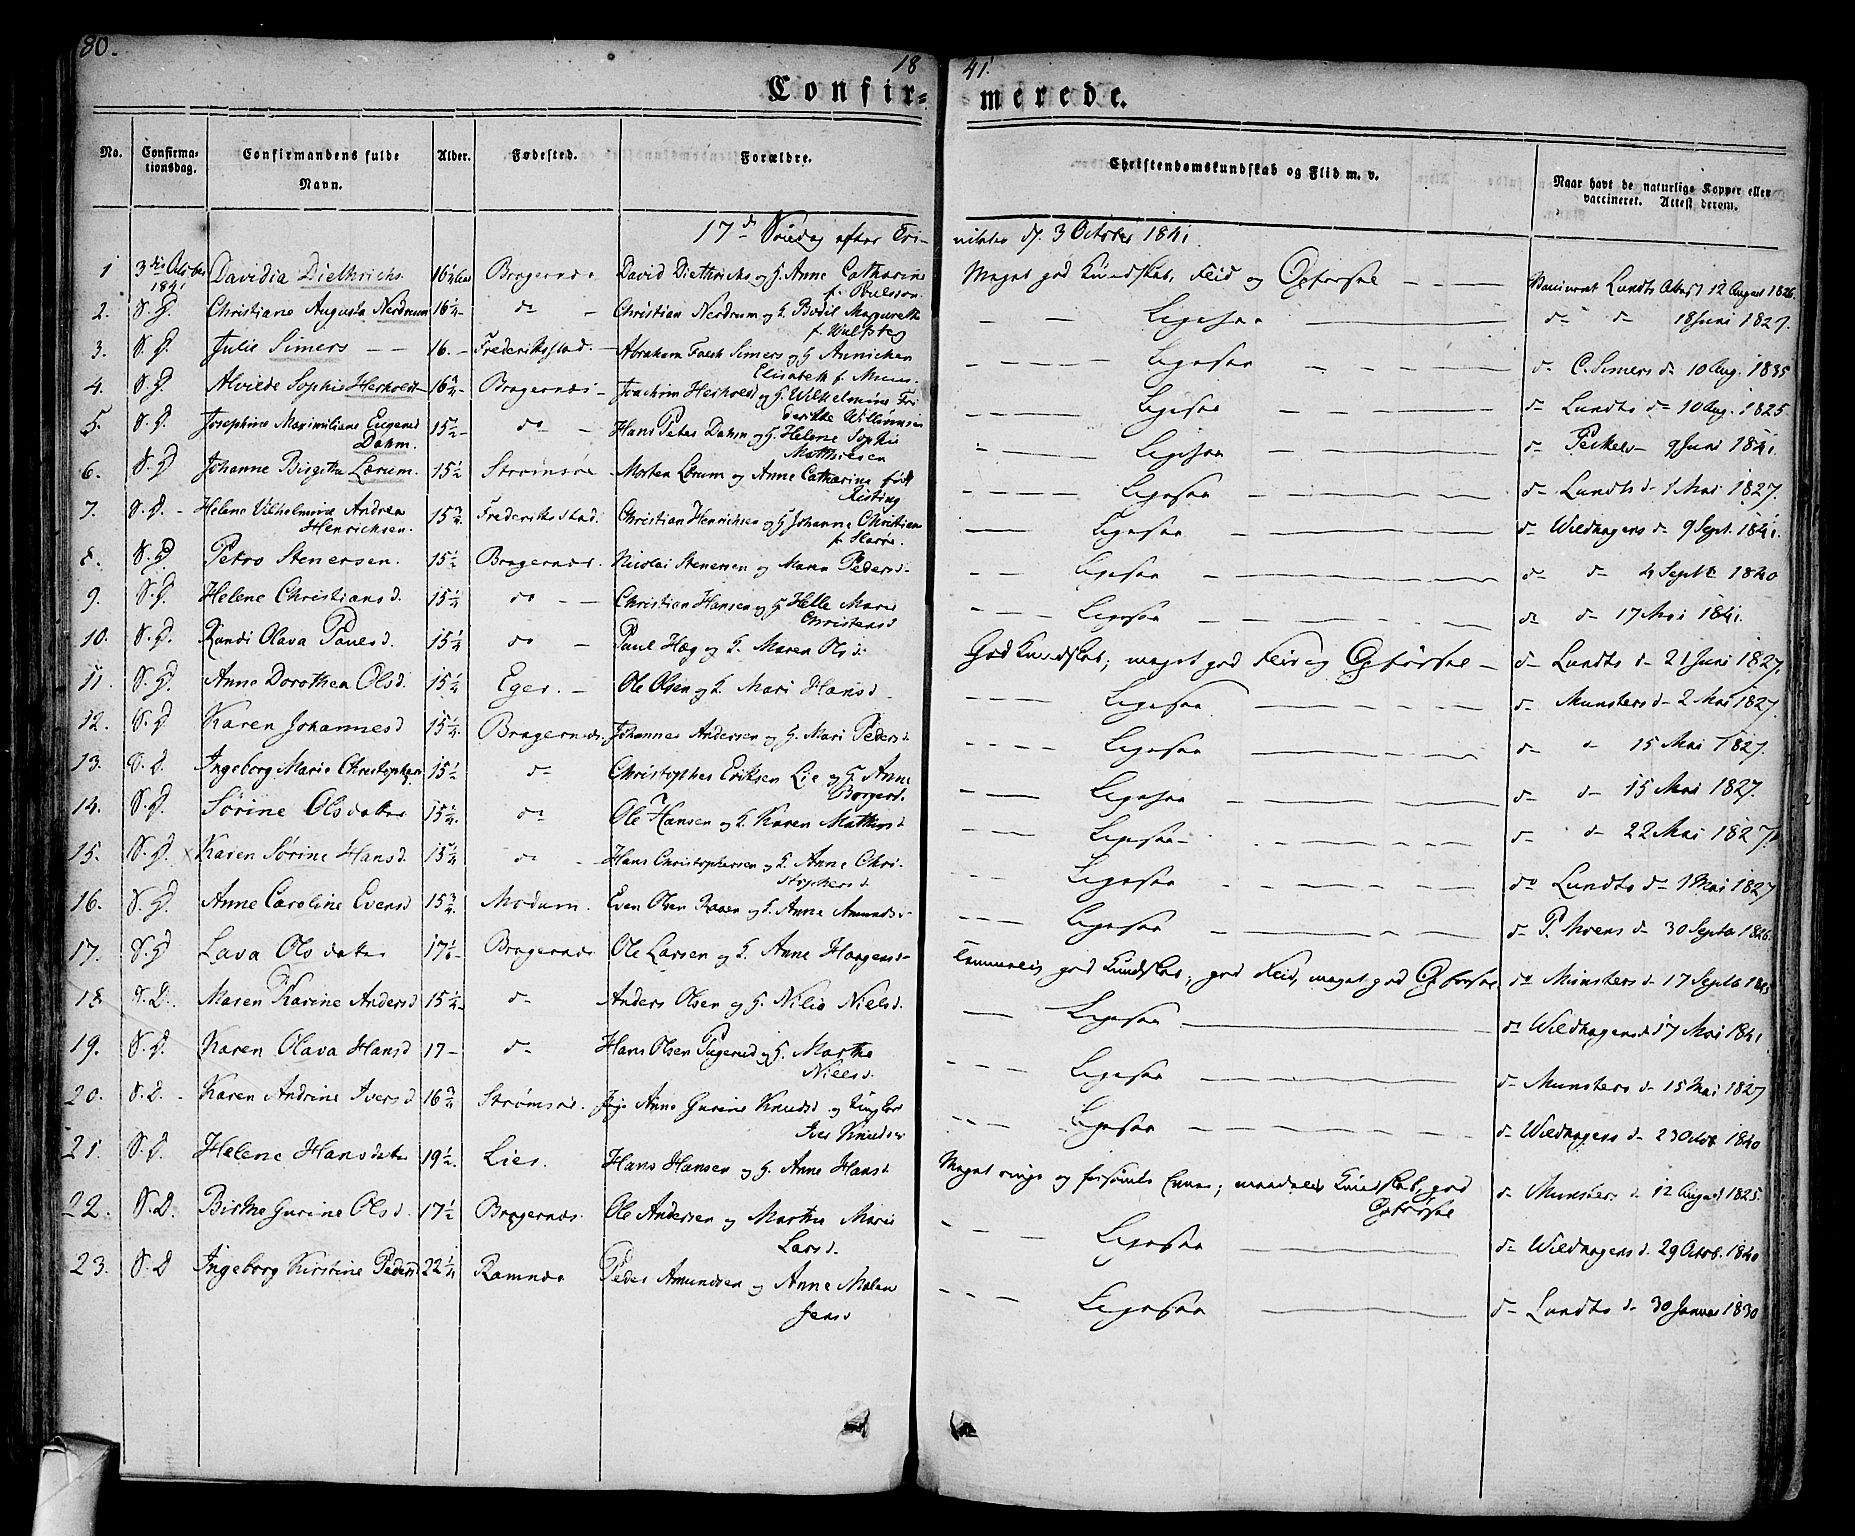 80.
18 41.
Confir= merede.
No. Confirma-tionsdag. Confirmandens fulde Navn. Alder. Fødested. Forældre. Christendomskundskab og Flid m. v. Naar havt de naturlige Kopper eller vaccineret. Attest derom.
17d Søndag efter Tri- nitatis d. 3 October 1841.
1 3die October 1841 Davidia Diethrichs. 16 1/4 Aar Bragernæs David Diethrichs og H. Anne Catharine f. Poulsson Meget god Kundskab, Flid og Opførsel Vaccineret Lundts Attest 12 August 1826.
2. S. D. Christiane Augusta Nerdrum 16 1/4 do Christian Nerdrum og H. Bodil Margareth f. Wulfsberg Ligesaa do do 18 Juni 1827.
3. S. D. Julie Simers 16. Frederikstad. Abraham Falch Simers og H. Annichen Elisabeth f. Ligesaa do C. Simers do 10 Aug. 1835
4. S. D. Alvilde Sophie Herholdt 16 3/4 Bragernæs Joachim Herholdt og H. Wilhelmine Fri-derikke Willumsen Ligesaa do Lundts do 10 Aug. 1825
5. S. D. Josephine Maximiliane Eugenie Dahm. 15 1/2 do Hans Peter Dahm og H. Helene Sophie Matthiesen Ligesaa do 9 Juni 1841.
6. S. D. Johanne Birgitha Lærum. 15 1/2 Strømsøe Morten Lærum og Anne Catharine født Risting Ligesaa do Lundts do 1 Mai 1827.
7. S. D. Helene Vilhelmine Andrea Henrichsen. 15 3/4 Frederikstad. Christian Henrichsen og H. Johanne Christiane f. Ligesaa do Wildhagens do 9 Sept. 1841.
8. S. D. Petra Stenersen. 15 1/2 Bragernæs. Nicolai Stenersen og Maren Pedersd. Ligesaa do do 4 Septbr 1840
9. S. D. Helene Christiansd. 15 1/4 do Christian Hansen og H. Helle Marie Christensd Ligesaa do do 17 Mai 1841.
10. S. D. Randi Olava Paulsd. 15 1/4 do Paul Hæg og H. Maren Olsd. God Kundskab, meget god Flid og Opførsel do Lundts do 21 Juni 1827.
11. S. D. Anne Dorothea Olsd. 15 1/4 Eger. Ole Olsen og H. Mari Hansd. Ligesaa do Munsters do 2 Mai 1827.
12. S. D. Karen Johannesd 15 1/4 Bragernæs. Johannes Andersen og H. Mari Pedersd. Ligesaa do do 15 Mai 1827.
13. S. D. Ingeborg Marie Christophersd 15 1/2 do Christopher Eriksen Lie og H. Anne Borgersd. Ligesaa do do 15 Mai 1827.
14. S. D. Sørine Olsdatter 15 1/4. do Ole Hansen og H. Karen Mathisd Ligesaa do do 22 Mai 1827.
15. S. D. Karen Sørine Hansd. 15 1/4 do Hans Christophersen og H. Anne Chri-stophersd. Ligesaa do Lundts do 1 Mai 1827
16. S. D. Anne Caroline Evensd 15 3/4. Modum. Even Olsen og H. Anne Amundsd. Ligesaa do P. Moens do 30 Septbr 1826.
17. S. D. Lava Olsdatter 17 Bragernæs Ole Larsen og H. Anne Haagensd. Temmelig god Kundskab, god Flid, meget god Opførsel do Munsters do 17 Septb
18. S. D. Maren Karine Andersd 15 1/4 do Anders Olsen og H. Nilia Nielsd. Ligesaa do Wildhagens do 17 Mai 1841
19. S. D. Karen Olava Hansd 17 do Hans Olsen og H. Marthe Nielsd. Ligesaa do Munsters do 15 Mai 1827
20. S. D. Karen Andrine Iversd 16 3/4 Strømsøe. Pige Anne Gurine Knudsd og Ungkarl Iver Knudsen Ligesaa do Wildhagens do 23 Octbr. 1840
21. S. D. Helene Hansdatter 19 1/2. Lier. Hans Hansen og H. Anne Hansd. Meget svage og forsømte Evner; maadelig Kundskab, god Opførsel do Munsters do 12 August 1825.
22. S. D. Birthe Gurine Olsd. 17 1/2 Bragernæs. Ole Andersen og Marthe Marie Larsd. Ligesaa do Wildhagens d. 29 Octob. 1840
23. S. D Ingeborg Kirstine Pedersd 22 1/4 Ramnæs Peder Amundsen og Anne Malene Jensd Ligesaa do Lundts do 30 Januar 1830